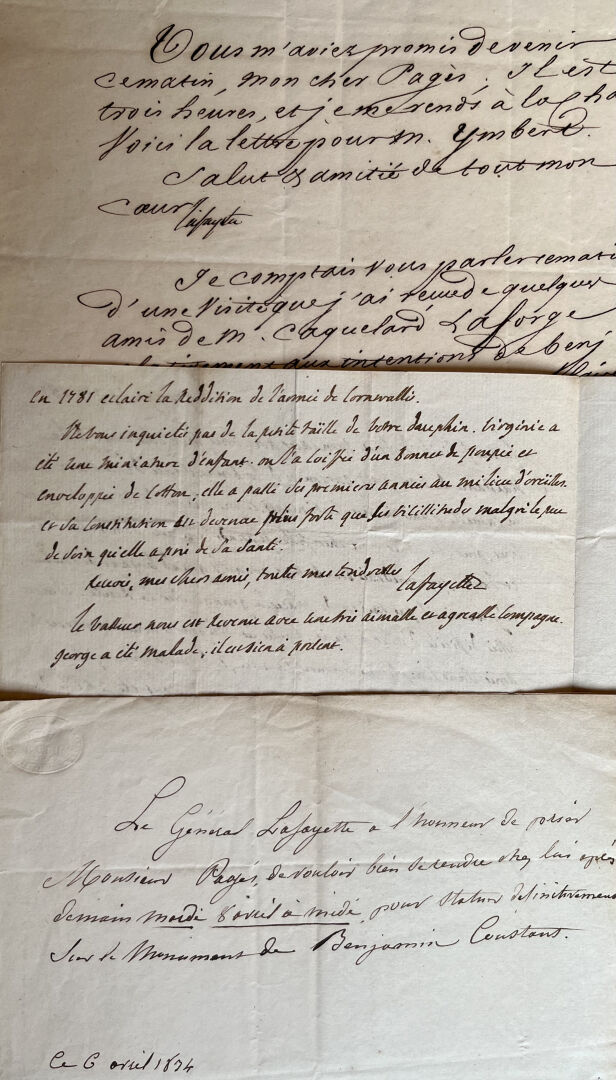 Vous m'aviez promis de venir
ce matin, mon cher Pagès. Il est
trois heures, et je me rends à la Cha
Voici la lettre pour M. Ymbert.
Salut & amitié de tout mon
cœur
Lafayette
Je comptais vous parler ce mati
d'une visite que j'ai reçue de quelques
amis de M. Caquelard Laforge
aux intentions de Benj
en 1781 eclaire la Reddition de l'armée de Cornwallis.
Ne vous inquietés pas de la petite taille de votre dauphin. Virginie a
été une miniature d'enfant. on l'a coiffée d'un bonnet de poupée et
enveloppée de cotton, elle a passé ses premieres années au milieu d'oreilles
et sa constitution est devenue plus forte que les vicissitudes malgré le peu
de soin qu'elle a pris de sa santé.
Recevés, mes chers amis, toutes mes tendresses
Lafayette
le Vasseur nous est revenu avec une très aimable et agreable compagne.
george a été malade, il est bien à présent.
Le Général Lafayette a l'honneur de prier
Monsieur Pagès, de vouloir bien se rendre chez lui après
demain mardi 8 avril à midi, pour statuer définitivement
sur le Monument de Benjamin Constant.
Ce 6 avril 1834